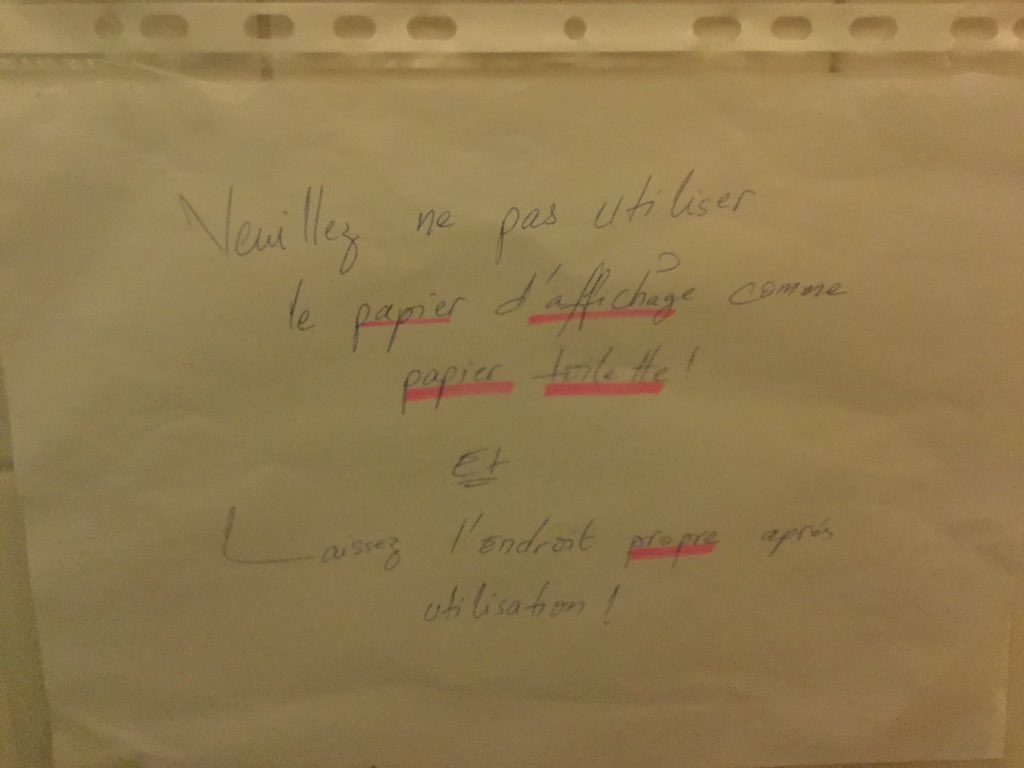 Veuillez ne pas utiliser
le papier d'affichage comme
papier toilette !
Et
Laissez l'endroit propre après
utilisation !